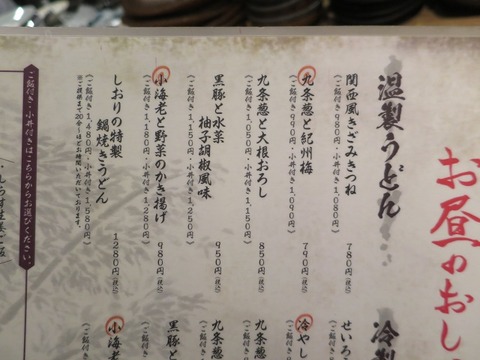 お昼のおし
温製うどん
関西風きざみきつね 780円(税込)
(ご飯付き・980円・小丼付き・1,080円)
九条葱と紀州梅 790円(税込)
(ご飯付き・990円・小丼付き・1,090円)
九条葱と大根おろし 850円(税込)
(ご飯付き・1,050円・小丼付き・1,150円)
黒豚と水菜
柚子胡椒風味 950円(税込)
(ご飯付き・1,150円・小丼付き・1,250円)
小海老と野菜のかき揚げ 980円(税込)
(ご飯付き・1,180円・小丼付き・1,280円)
しおりの特製
鍋焼きうどん 1280円(税込)
(ご飯付き・1,480円・小丼付き・1,580円)
※ご提供まで20分ほどお時間いただいております。
ご飯付き・小丼付きはこちらからお選びください。
冷製
せいろ
(ご飯付き
冷やし
(ご飯付き
九条葱
(ご飯付き
九条葱
(ご飯付き
黒豚と
(ご飯付き
小海老
(ご飯付き